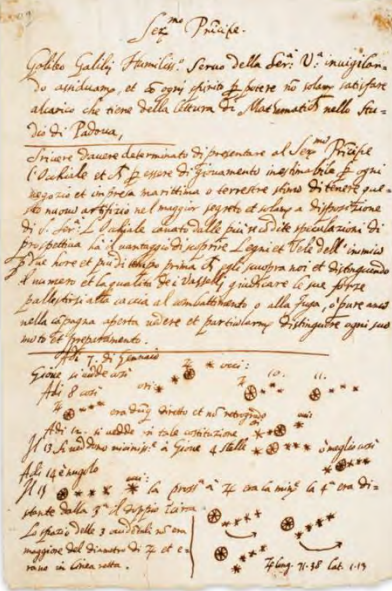 Ser.mo Principe.
Galileo Galilei Humiliss.o Servo della Ser.a V.a invigilan-
do assiduamte, et con ogni spirito p potere no solam satisfare
alcarico che tiene della lettura di Mathematich nello Stu-
dio di Padova,
Scrivere davere determinato di presentare al Ser.mo Principe
l'Occhiale et p essere di giovamento inestimabile p ogni
negozio et impresa marittima o terrestre stimo di tenere que-
sto nuovo artifizio nel maggior segreto et solam a disposizione
di S. Ser.a L'Occhiale cavato dalle più recondite speculazioni di
prospettiva ha il vantaggio di scoprire Legni et Vele dell'inimico
p due hore et più di tempo prima ch egli scuopra noi et distinguendo
il numero et la qualità dei Vasselli giudicare le sue forze
pallestirsi alla caccia al combattimento o alla fuga, o pure anco
nella capagna aperta vedere et particolarm distinguere ogni suo
moto et preparamento.
Adi 7. di Gennaio
Giove si vedde così
Adi 8 così
era dunq diretto et no retrogrado
Adi 12. si vedde in tale costituzione
Il 13 si veddono vicinis.e a Giove 4 stelle o meglio così
Adi 14 è nugolo
Il 15 la pross.a a ♃ era la min.e la 4.a era di-
stante dalla 3.a il doppio incirca
Lo spazio delle 3 occidentali no era
maggiore del diametro di ♃ et e-
rano in linea retta.
♃ long. 71.38 lat. 1.13